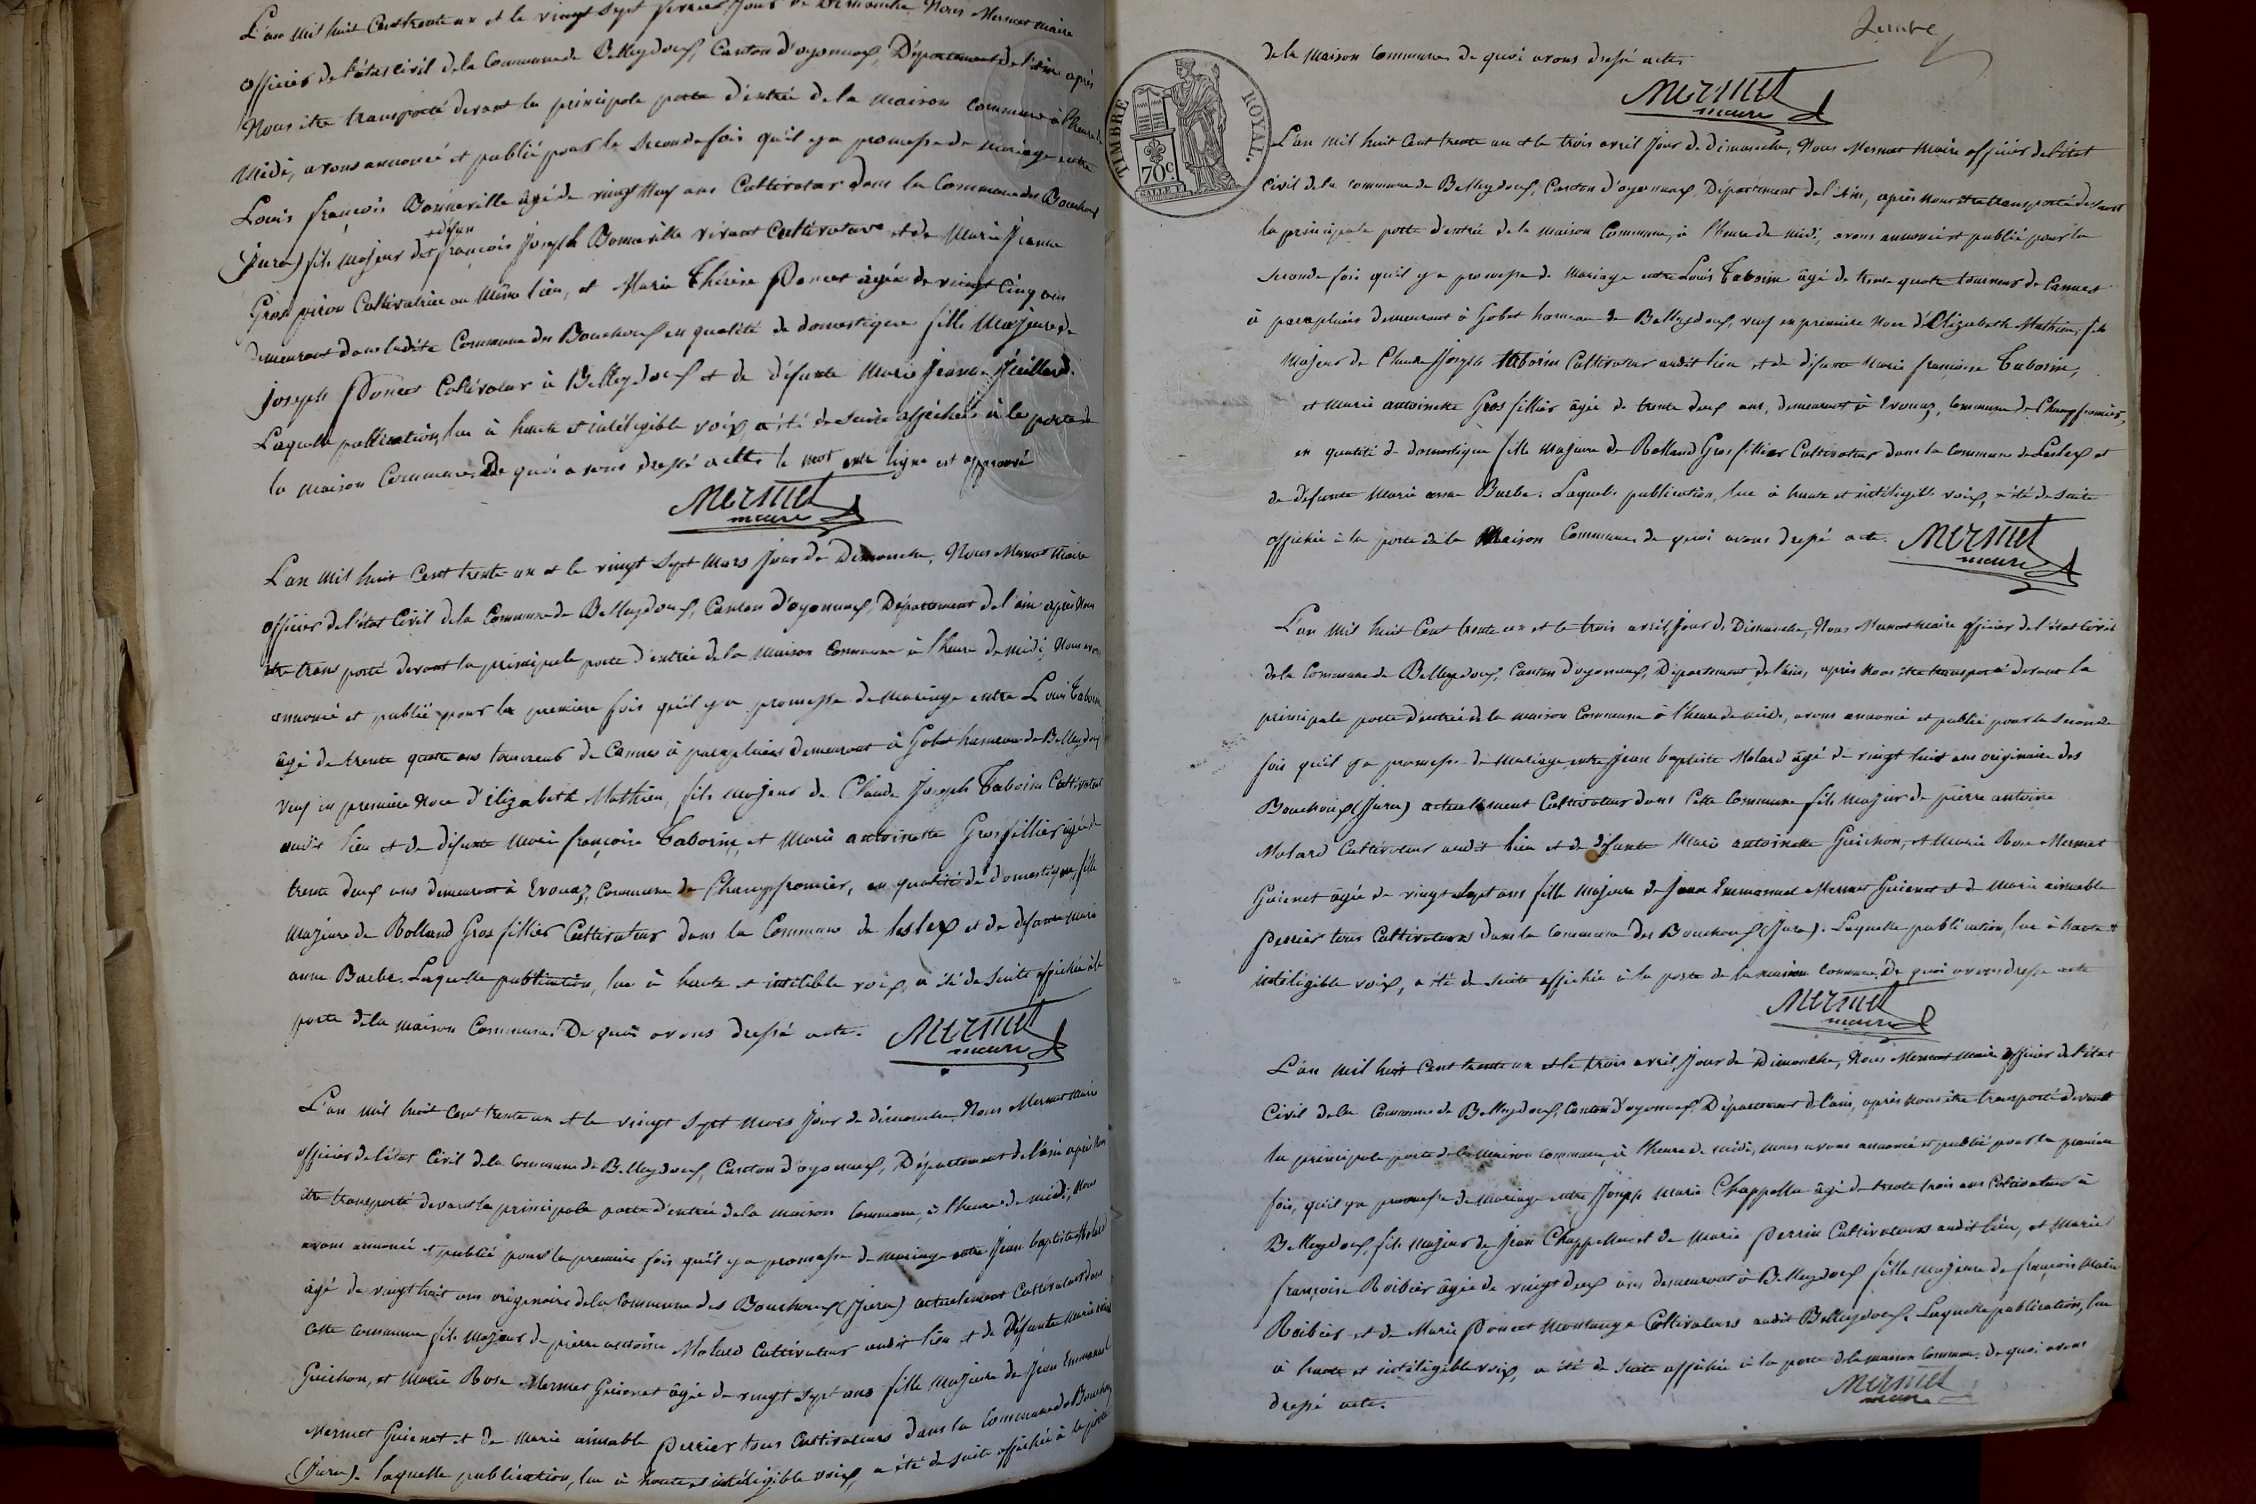 L'an mil huit Cent trente un et le vingt sept fevrier Jour de Dimanche Nous Mermet maire
officier de l'état civil de la Commune de Belleydoux, Canton d'oyonnax, Département de l'ain après
Nous être transporté devant la principale porte d'entrée de la maison commune à l'heure de
Midi, avons annoncé et publié pour la seconde fois qu'il y a promesse de mariage entre
Louis françois Bonneville âgé de vingt neuf ans Cultivateur dans la Commune des Bouchoux
+ défun
(Jura) fils majeur de + françois Joseph Bonneville vivant Cultivateur et de Marie Jeanne
Gros piron Cultivatrice au même lieu, et Marie Thérèse Poncet âgée de vingt cinq ans
demeurant dans ladite Commune des Bouchoux en qualité de domestique fille Majeure de
Joseph Poncet Cultivateur à Belleydoux et de défunte Marie Jeanne
Laquelle publication, lue à haute et intéligible voix a été de suite affichée à la porte de
la maison Commune. De quoi avons dressé acte le mot entre ligne est approuvé
Mermet
maire
L'an mil huit Cent trente un et le vingt sept Mars Jour de Dimanche, Nous Mermet Maire
officier de l'état Civil de la Commune de Belleydoux, Canton d'oyonnax, Département de l'ain après Nous
être transporté devant la principale porte d'entrée de la maison Commune à l'heure de midi, Nous avons
annoncé et publié pour la première fois qu'il y a promesse de mariage entre Louis Taborin
âgé de trente quatre ans tourneur de Cannes à parapluies demeurant à Gobet hameau de Belleydoux
veuf en première Noce d'élizabeth Mathieu, fils majeur de Claude Joseph Taborin Cultivateur
audit lieu et de défunte Marie françoise Taborin, et Marie antoinette Grosfillier âgée de
trente deux ans demeurant à Evouaz, Commune de Champfromier, en qualité de domestique, fille
majeure de Rolland Gros fillier Cultivateur dans la Commune de leslex et de défunte Marie
anne Barbe. Laquelle publication, lue à haute et intélible voix, a été de suite affichée à la
porte de la maison Commune. De quoi avons dressé acte.
Mermet
maire
L'an mil huit cent trente un et le vingt sept Mars Jour de dimanche Nous Mermet Maire
officier de l'état Civil de la Commune de Belleydoux, Canton d'oyonnax, Département de l'ain après Nous
être transporté devant la principale porte d'entrée de la maison Commune, à l'heure de midi, Nous
avons annoncé et publié pour la première fois qu'il y a promesse de mariage entre Jean baptiste Molard
âgé de vingt huit ans originaire de la Commune des Bouchoux (Jura) actuelement Cultivateur dans
cette Commune fils Majeur de pierre antoine Molard Cultivateur audit lieu et de Défunte Marie
Guichon, et Marie Rose Mermet Guienet âgée de vingt sept ans fille majeure de Jean Emmanuel
Mermet Guienet et de Marie aimable perrier tous Cultivateurs dans la Commune des Bouchoux
(Jura). laquelle publication, lue à haute et intéligible voix, a été de suite affichée à la porte
de la Maison Commune de quoi avons dressé acte.
Mermet
maire
TIMBRE ROYAL.
70c
L'an mil huit Cent trente un et le trois avril Jour de dimanche, Nous Mermet Maire officier de l'état
Civil de la commune de Belleydoux, Canton d'oyonnax, Département de l'Ain, après nous être transporté devant
la principale porte d'entrée de la maison Commune, à l'heure de midi, avons annoncé et publié pour la
seconde fois qu'il y a promesse de Mariage entre Louis Taborin âgé de trente quatre tourneur de Cannes
à parapluies demeurant à Gobet hameau de Belleydoux, veuf en première Noce d'Elizabeth Mathieu, fils
Majeur de Claude Joseph Taborin Cultivateur audit lieu et de défunte Marie françoise Taborin,
et Marie antoinette Gros fillier âgée de trente deux ans, demeurant à Evouaz, Commune de Champfromier,
en qualité de domestique fille Majeure de Rolland Gros fillier Cultivateur dans la Commune de Leslex et
de défunte Marie anne Barbe. Laquelle publication, lue à haute et intéligible voix, a été de suite
affichée à la porte de la Maison Commune de quoi avons dressé acte.
Mermet
maire
L'an Mil huit Cent trente un et le trois avril, Jour de Dimanche, Nous Mermet Maire officier de l'état Civil
de la Commune de Belleydoux, Canton d'oyonnax, Département de l'ain, après Nous être transporté devant la
principale porte d'entrée de la maison Commune à l'heure de midi, avons annoncé et publié pour la seconde
fois qu'il y a promesse de Mariage entre Jean baptiste Molard âgé de vingt huit ans originaire des
Bouchoux (Jura) actuelement Cultivateur dans Cette Commune fils Majeur de pierre antoine
Molard Cultivateur audit lieu et de défunte Marie antoinette Guichon, et Marie Rose Mermet
Guienet âgée de vingt sept ans fille Majeure de Jean Emmanuel Mermet Guienet et de Marie aimable
perrier tous Cultivateurs dans la Commune des Bouchoux (Jura). Laquelle publication, lue à haute et
intéligible voix, a été de suite affichée à la porte de la maison Commune. De quoi avons dressé acte
Mermet
maire
L'an mil huit Cent trente un et le trois avril, Jour de Dimanche, Nous Mermet Maire officier de l'état
Civil de la Commune de Belleydoux, Canton d'oyonnax, Département de l'ain, après Nous être transporté devant
la principale porte de la Maison Commune, à l'heure de midi, nous avons annoncé et publié pour la première
fois, qu'il y a promesse de Mariage entre Joseph Marie Chappellu âgé de trente trois ans Cultivateur à
Belleydoux, fils Majeur de Jean Chappellu et de Marie perrin Cultivateurs audit lieu, et Marie
françoise Roibier âgée de vingt deux ans demeurant à Belleydoux fille majeure de françois Marie
Roibier et de Marie Poncet Montange Cultivateurs audit Belleydoux. Laquelle publication, lue
à haute et intéligible voix, a été de suite affichée à la porte de la maison Commune. De quoi avons
dressé acte.
Mermet
maire